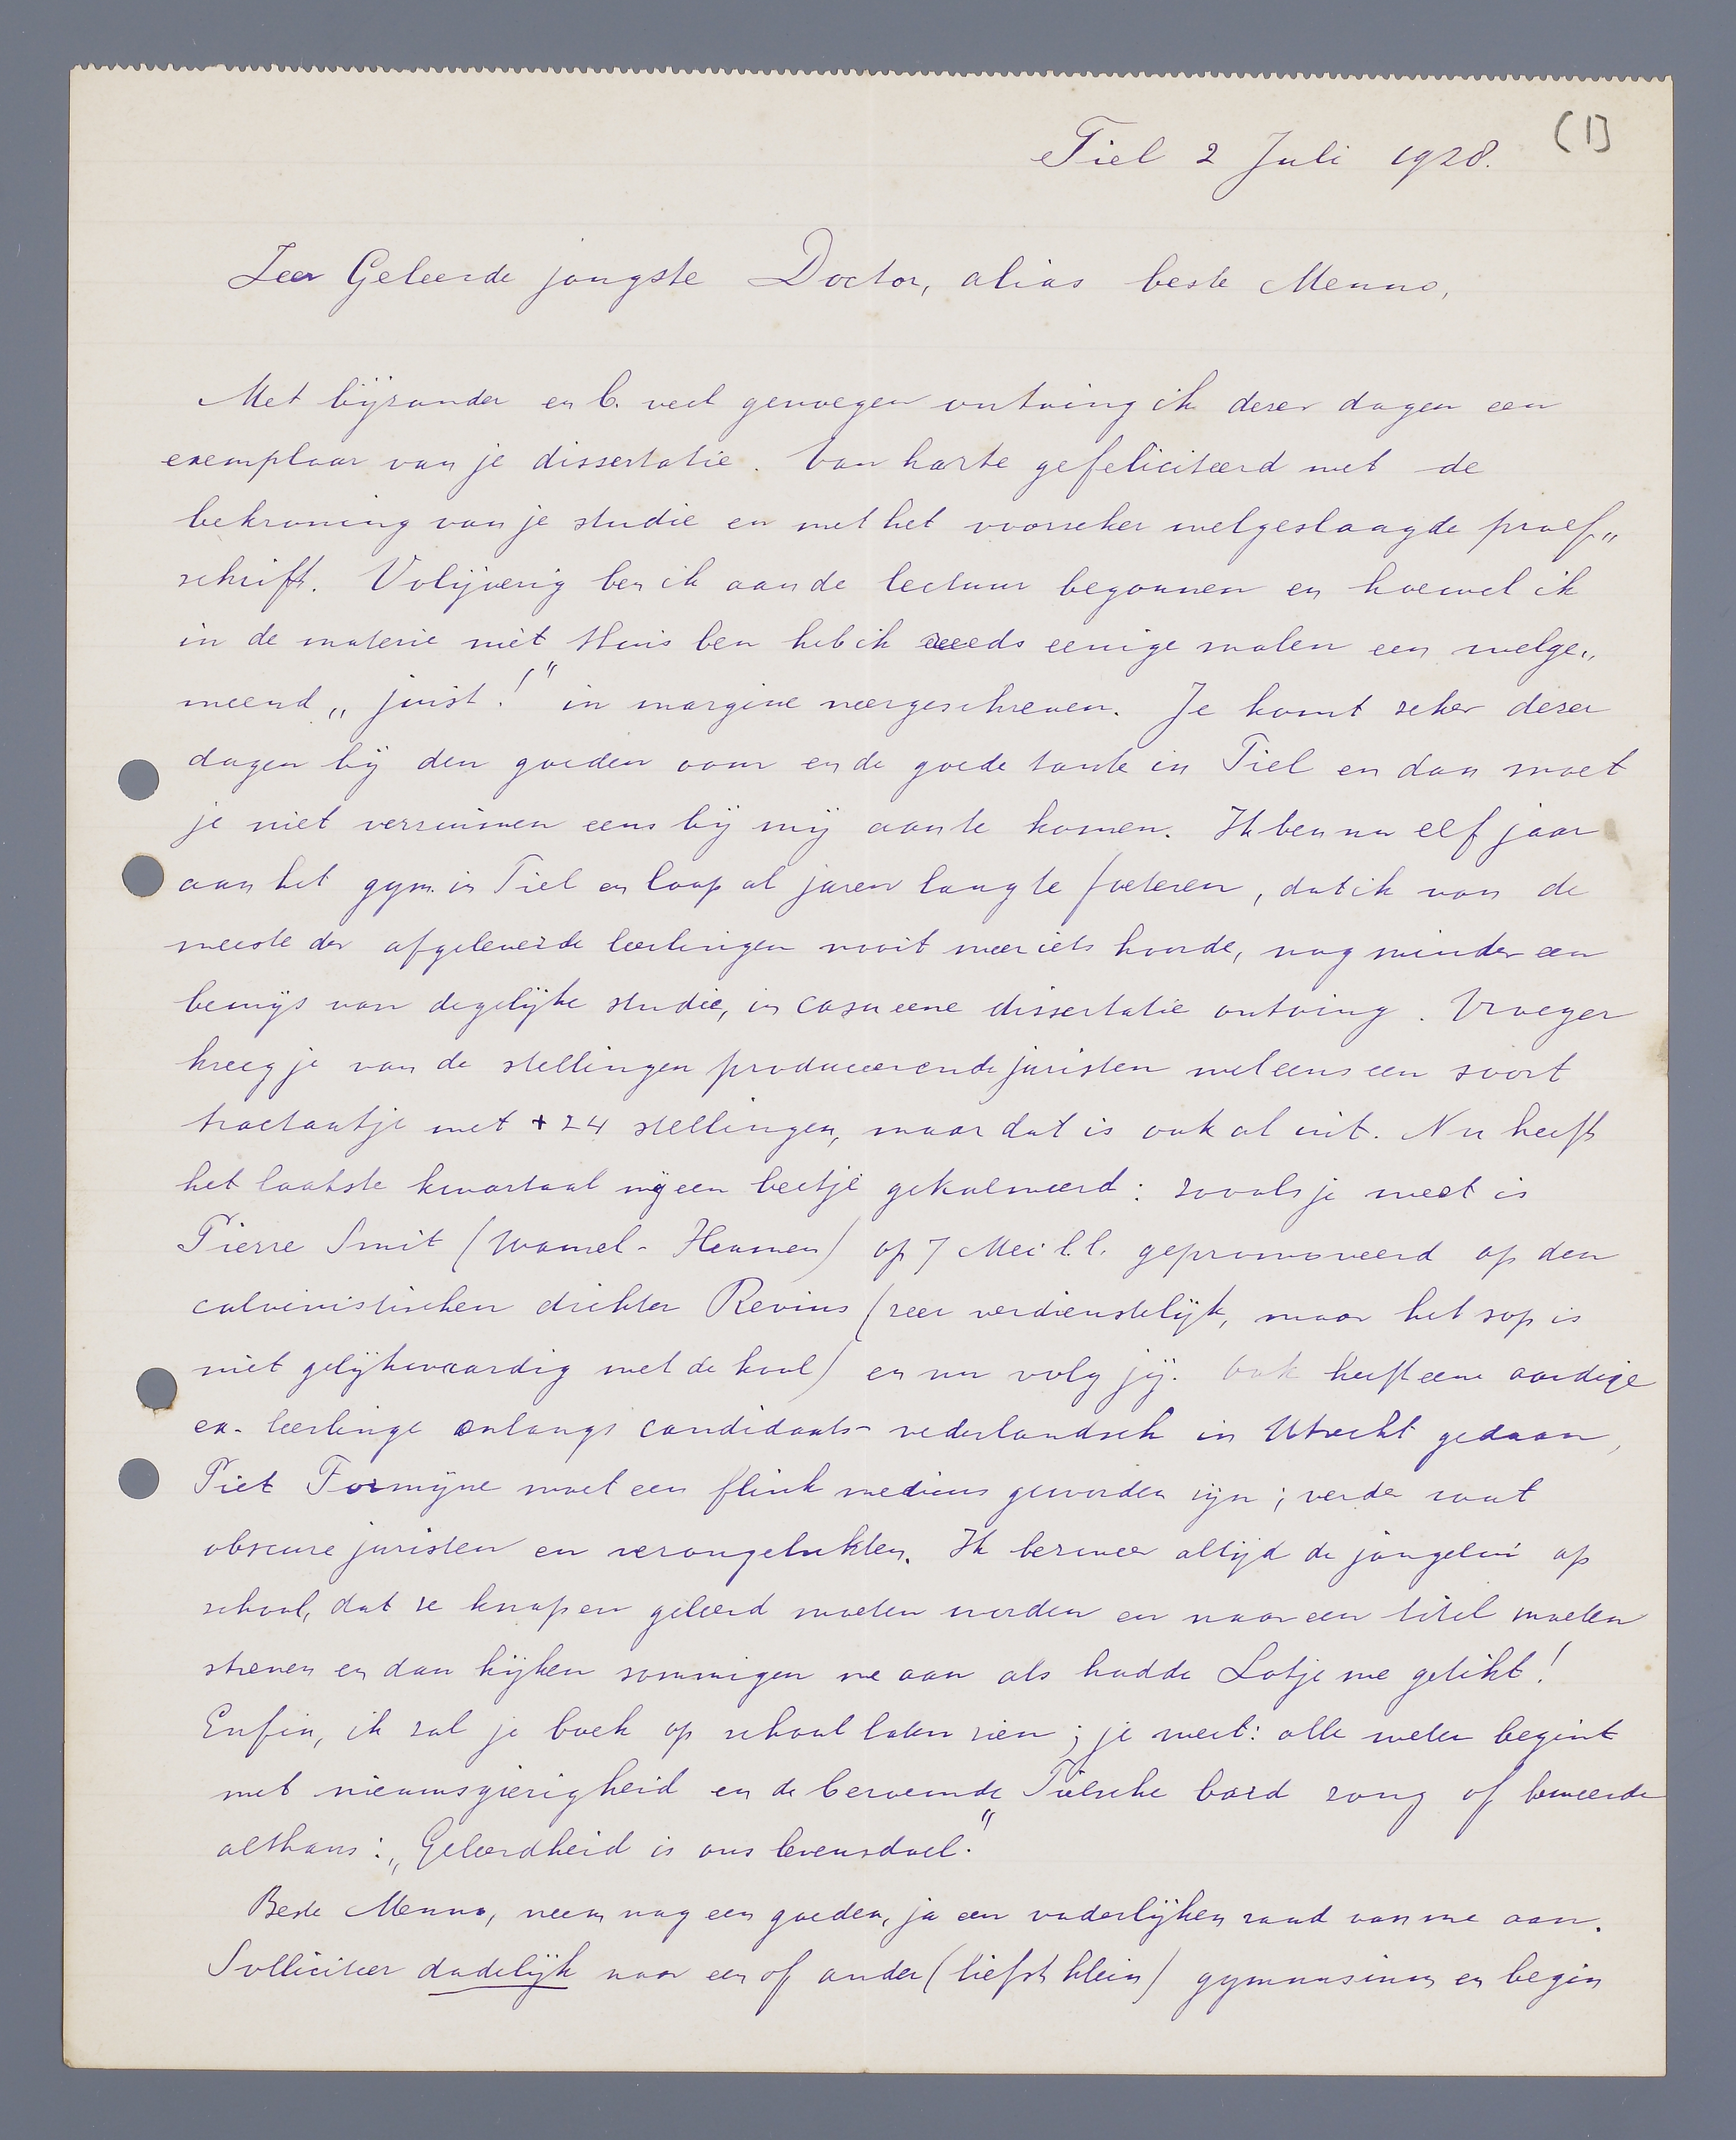 (1)
Tiel 2 Juli 1928.
Zeer Geleerde jongste Doctor, alias beste Menno,
Met bijzonder en b. veel genoegen ontving ik dezer dagen een
exemplaar van je dissertatie. Van harte gefeliciteerd met de
bekroning van je studie en met het voorzeker welgeslaagde proef„
schrift. Volijverig ben ik aan de lectuur begonnen en hoewel ik
in de materie niet thuis ben heb ik reeds eenige malen een welge„
meend „juist!" in margine neergeschreven. Je komt zeker dezer
dagen bij den goeden oom en de goede tante in Tiel en dan moet
je niet verzuimen eens bij mij aan te komen. Ik ben nu elf jaar
aan het gym. in Tiel en loop al jaren lang te foeteren, dat ik van de
meeste der afgeleverde leerlingen nooit meer iets hoorde, nog minder een
bewijs van degelijke studie, in casu eene dissertatie ontving. Vroeger
kreeg je van de stellingen produceerende juristen wel eens een soort
tractaatje met + 24 stellingen, maar dat is ook al uit. Nu heeft
het laatste kwartaal mij een beetje gekalmeerd: zooals je weet is
Pierre Smit (Wamel - Heumen) op 7 Mei l.l. gepromoveerd op den
calvinistischen dichter Revius (zeer verdienstelijk, maar het sop is
niet gelijkwaardig met de kool) en nu volg jij. Ook heeft eene aardige
ex-leerlinge onlangs candidaats-nederlandsch in Utrecht gedaan,
Piet Formijne moet een flink medicus geworden zijn; verder wat
obscure juristen en verongelukten. Ik beweer altijd de jongelui op
school, dat ze knap en geleerd moeten worden en naar een titel moeten
streven en dan kijken sommigen me aan als hadde Lotje me getikt!
Enfin, ik zal je boek op school laten zien; je weet: alle weten begint
met nieuwsgierigheid en de beroemde Tielsche bard zong of beweerde
althans: „Geleerdheid is ons levensdoel."
Beste Menno, neem nog een goeden, ja een vaderlijken raad van me aan.
Solliciteer dadelijk naar een of ander (liefst klein) gymnasium en begin